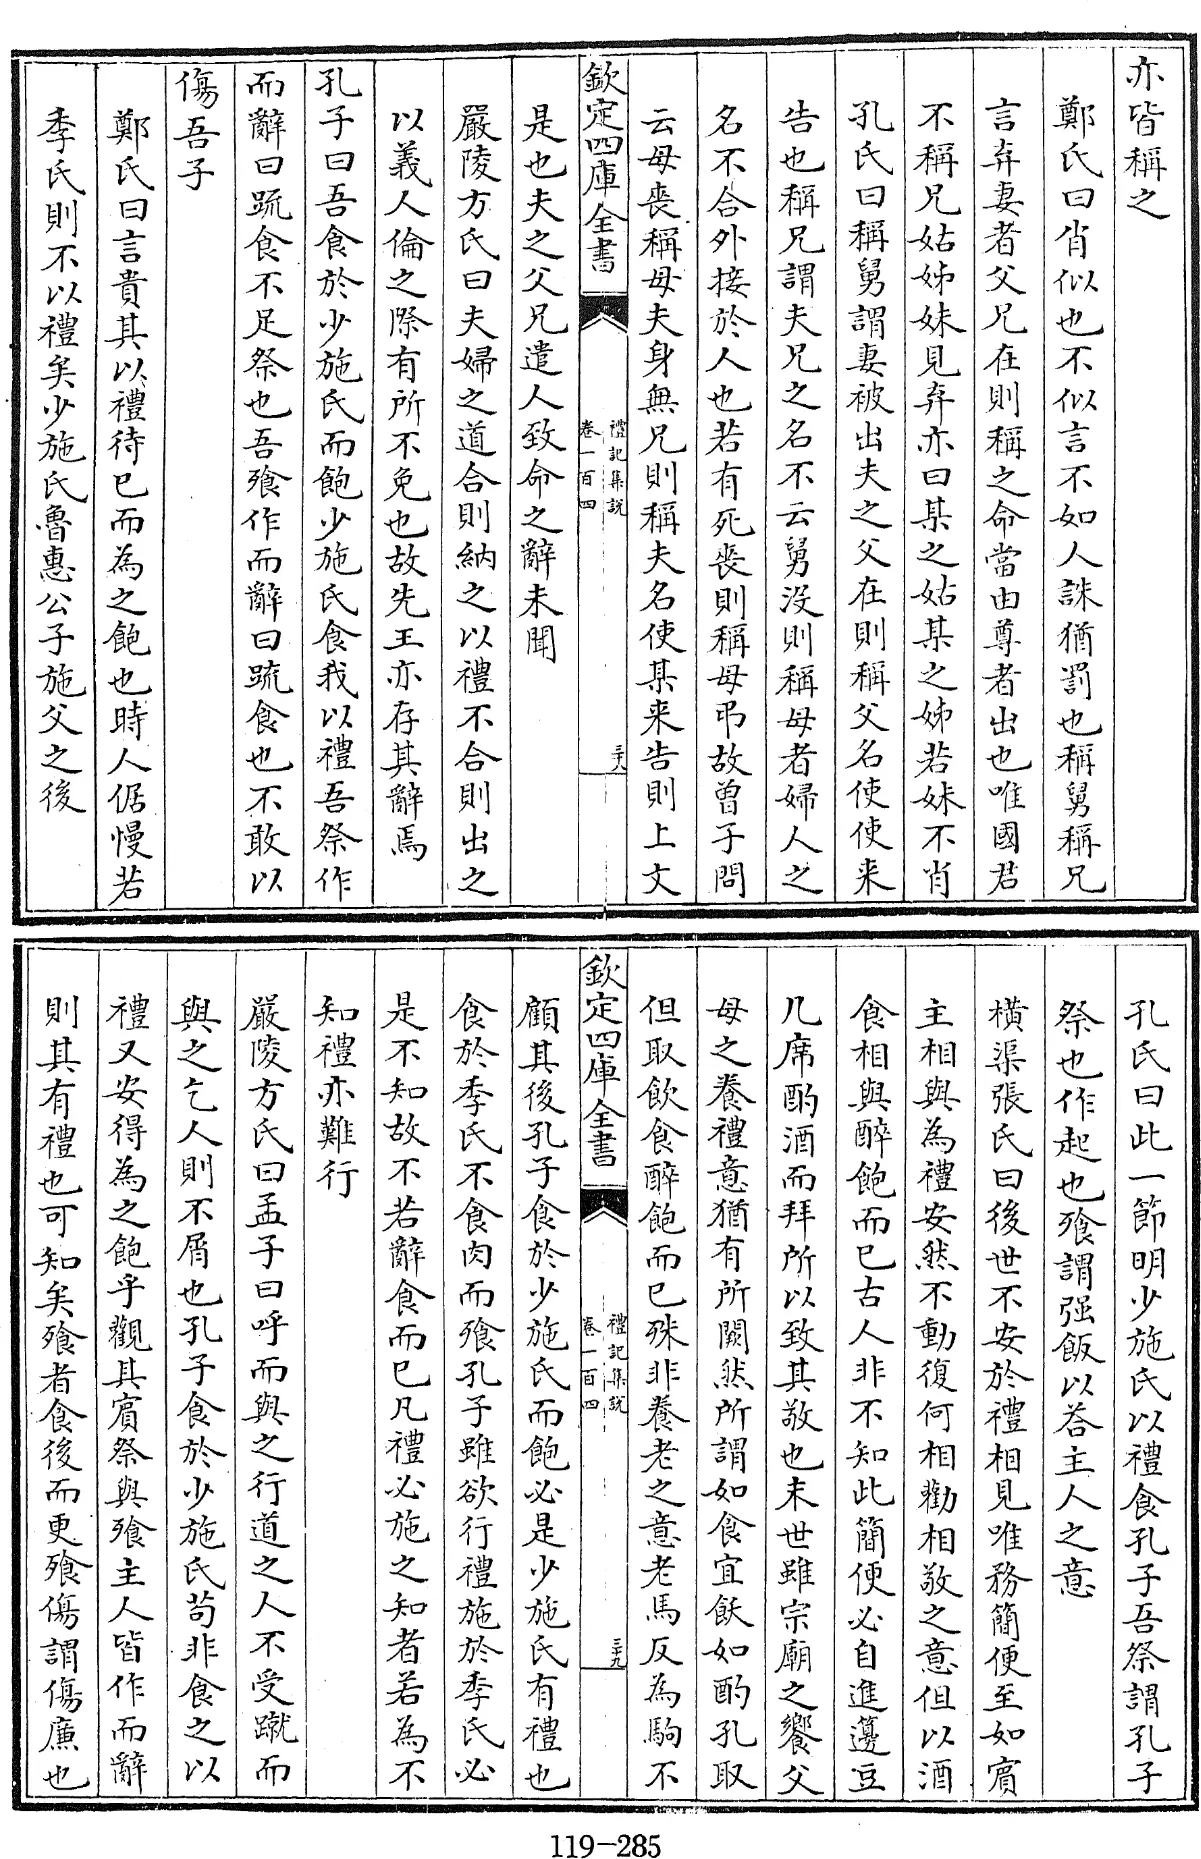 亦皆稱之
鄭氏曰肖似也不似言不如人誅猶罰也稱舅稱兄
言弃妻者父兄在則稱之命當由尊者出也唯國君
不稱兄姑姊妹見弃亦曰某之姑某之姊若妹不肖
孔氏曰稱舅謂妻被出夫之父在則稱父名使使来
告也稱兄謂夫兄之名不云舅没則稱母者婦人之
名不合外接於人也若有死喪則稱母弔故曽子問
云母喪稱母夫身無兄則稱夫名使某来告則上文
欽定四庫全書
禮記集說
卷一百四
三十八
是也夫之父兄遣人致命之辭未聞
嚴陵方氏曰夫婦之道合則納之以禮不合則出之
以義人倫之際有所不免也故先王亦存其辭焉
孔子曰吾食於少施氏而飽少施氏食我以禮吾祭作
而辭曰疏食不足祭也吾飱作而辭曰疏食也不敢以
傷吾子
鄭氏曰言貴其以禮待已而為之飽也時人倨慢若
季氏則不以禮矣少施氏魯惠公子施父之後
孔氏曰此一節明少施氏以禮食孔子吾祭謂孔子
祭也作起也飱謂强飯以荅主人之意
橫渠張氏曰後世不安於禮相見唯務簡便至如賔
主相與為禮安然不動復何相勸相敬之意但以酒
食相與醉飽而已古人非不知此簡便必自進籩豆
几席酌酒而拜所以致其敬也末世雖宗廟之饗父
母之養禮意猶有所闕然所謂如食宜飫如酌孔取
但取飲食醉飽而已殊非養老之意老馬反為駒不
欽定四庫全書
禮記集說
卷一百四
三十九
顧其後孔子食於少施氏而飽必是少施氏有禮也
食於季氏不食肉而飱孔子雖欲行禮施於季氏必
是不知故不若辭食而已凡禮必施之知者若為不
知禮亦難行
嚴陵方氏曰孟子曰呼而與之行道之人不受蹴而
與之乞人則不屑也孔子食於少施氏苟非食之以
禮又安得為之飽乎觀其賔祭與飱主人皆作而辭
則其有禮也可知矣飱者食後而更飱傷謂傷廉也
119-285